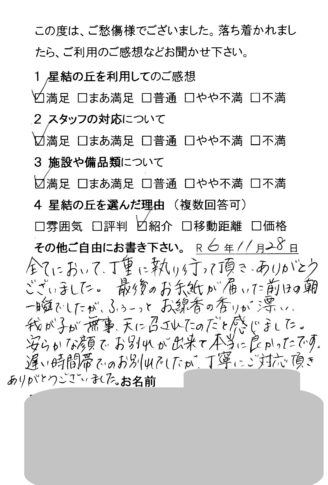 この度は、ご愁傷様でございました。落ち着かれまし
たら、ご利用のご感想などお聞かせ下さい。
1 星結の丘を利用してのご感想
☑満足 □まあ満足 □普通 □やや不満 □不満
2 スタッフの対応について
☑満足 □まあ満足 □普通 □やや不満 □不満
3 施設や備品類について
☑満足 □まあ満足 □普通 □やや不満 □不満
4 星結の丘を選んだ理由（複数回答可）
□雰囲気 □評判 ☑紹介 □移動距離 □価格
その他ご自由にお書き下さい。 R 6年11月28日
全てにおいて、丁重に執り行って頂き、ありがとう
ございました。 最後のお手紙が届いた前日の朝
一瞬でしたが、ふぅーっとお線香の香りが漂い、
我が子が無事、天に召されたのだと感じました。
安らかな顔でお別れが出来て本当に良かったです。
遅い時間帯でのお別れでしたが、丁寧にご対応頂き
ありがとうございました。お名前